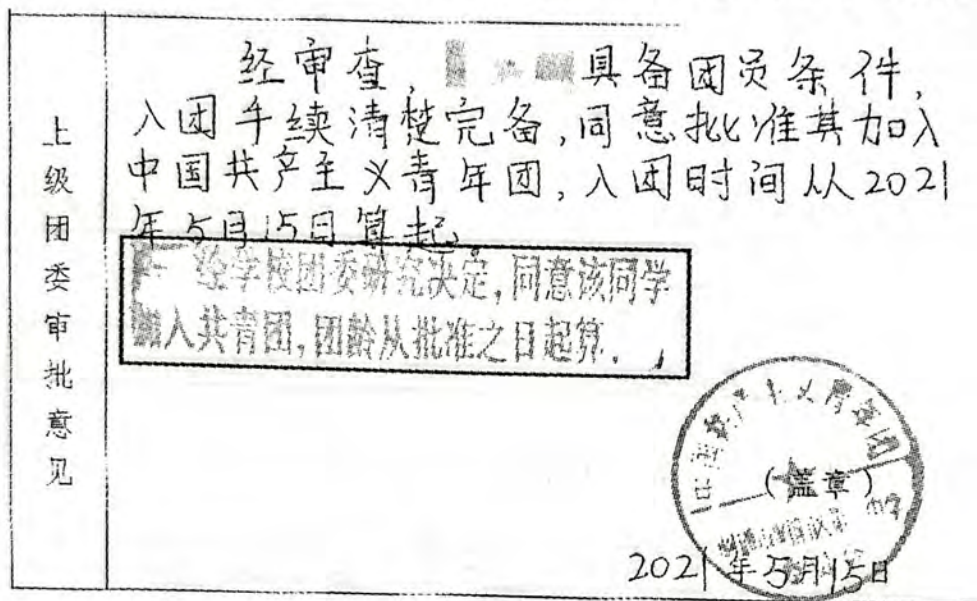 上级团委审批意见
经审查, 具备团员条件,
入团手续清楚完备,同意批准其加入
中国共产主义青年团,入团时间从2021
年5月15日算起。
经学校团委研究决定,同意该同学
加入共青团,团龄从批准之日起算.
共产主义青年团
(盖章)
2021年5月15日